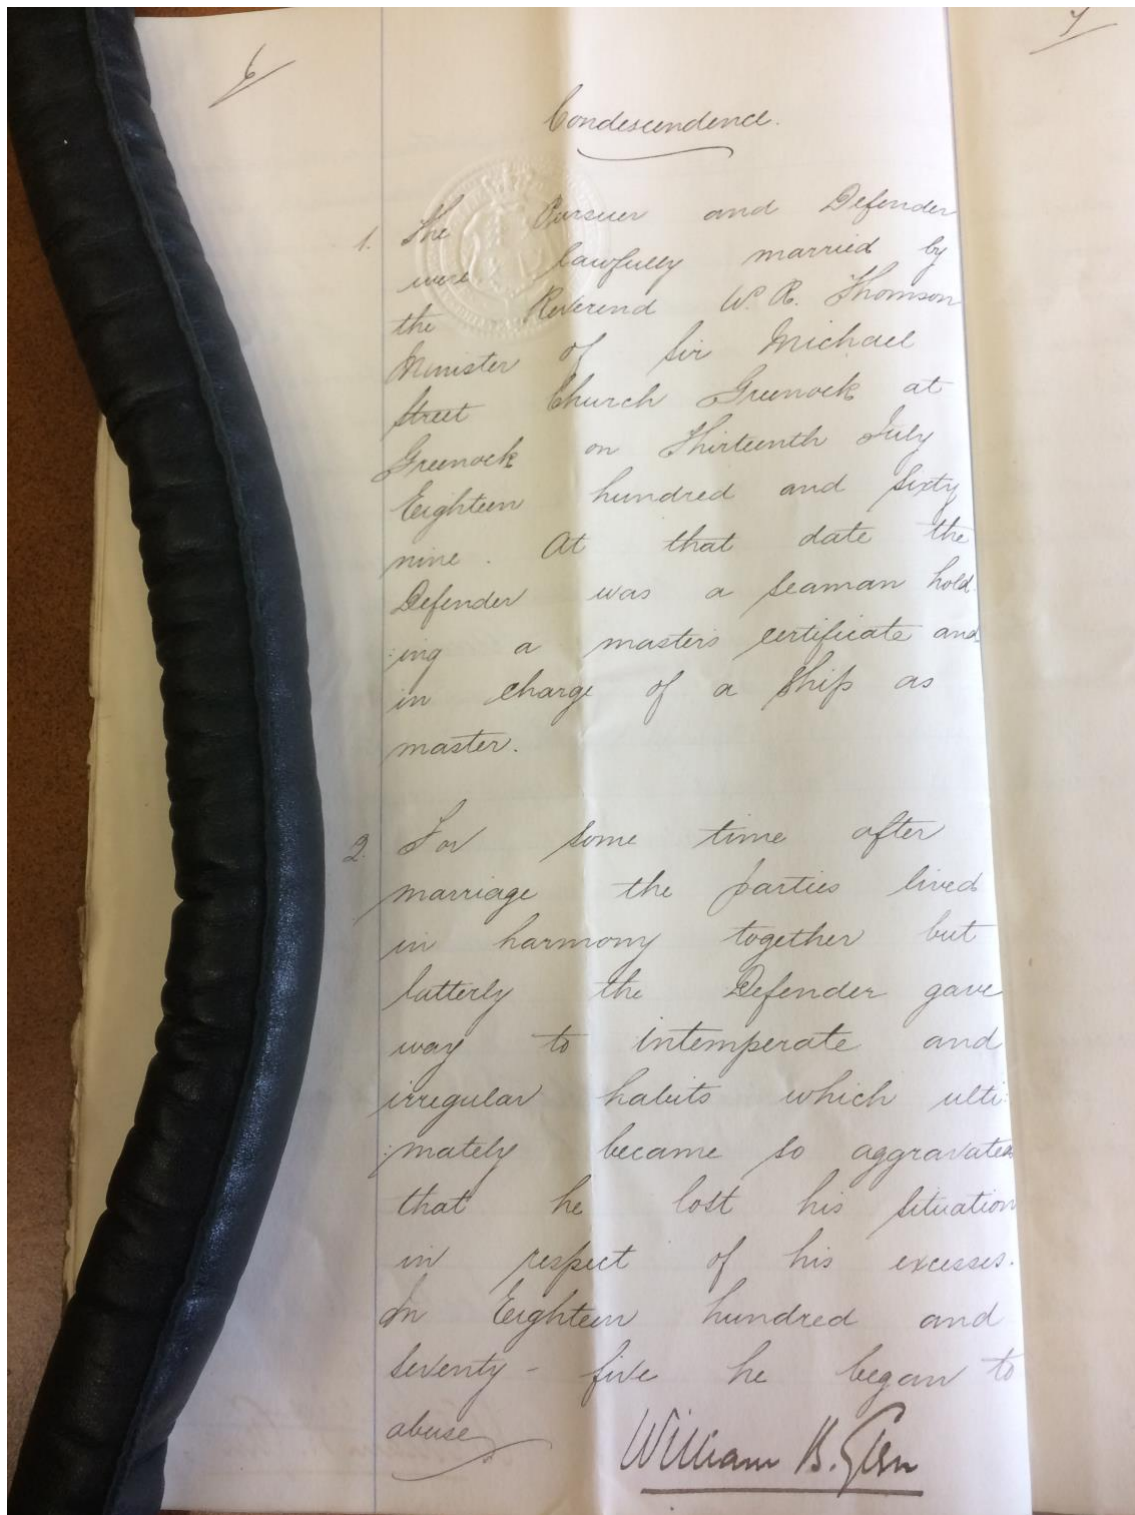 6
7
Condescendence.
1. The Pursuer and Defender
were lawfully married by
the Reverend W. R. Thomson
Minister of Sir Michael
Street Church Greenock at
Greenock on Thirteenth July
Eighteen hundred and Sixty
nine. At that date the
Defender was a seaman hold
:ing a master's certificate and
in charge of a ship as
master.
2. For some time after
marriage the parties lived
in harmony together but
latterly the Defender gave
way to intemperate and
irregular habits which ulti:
:mately became so aggravated
that he lost his situation
in respect of his excesses.
In Eighteen hundred and
seventy-five he began to
abuse
William B. Glen